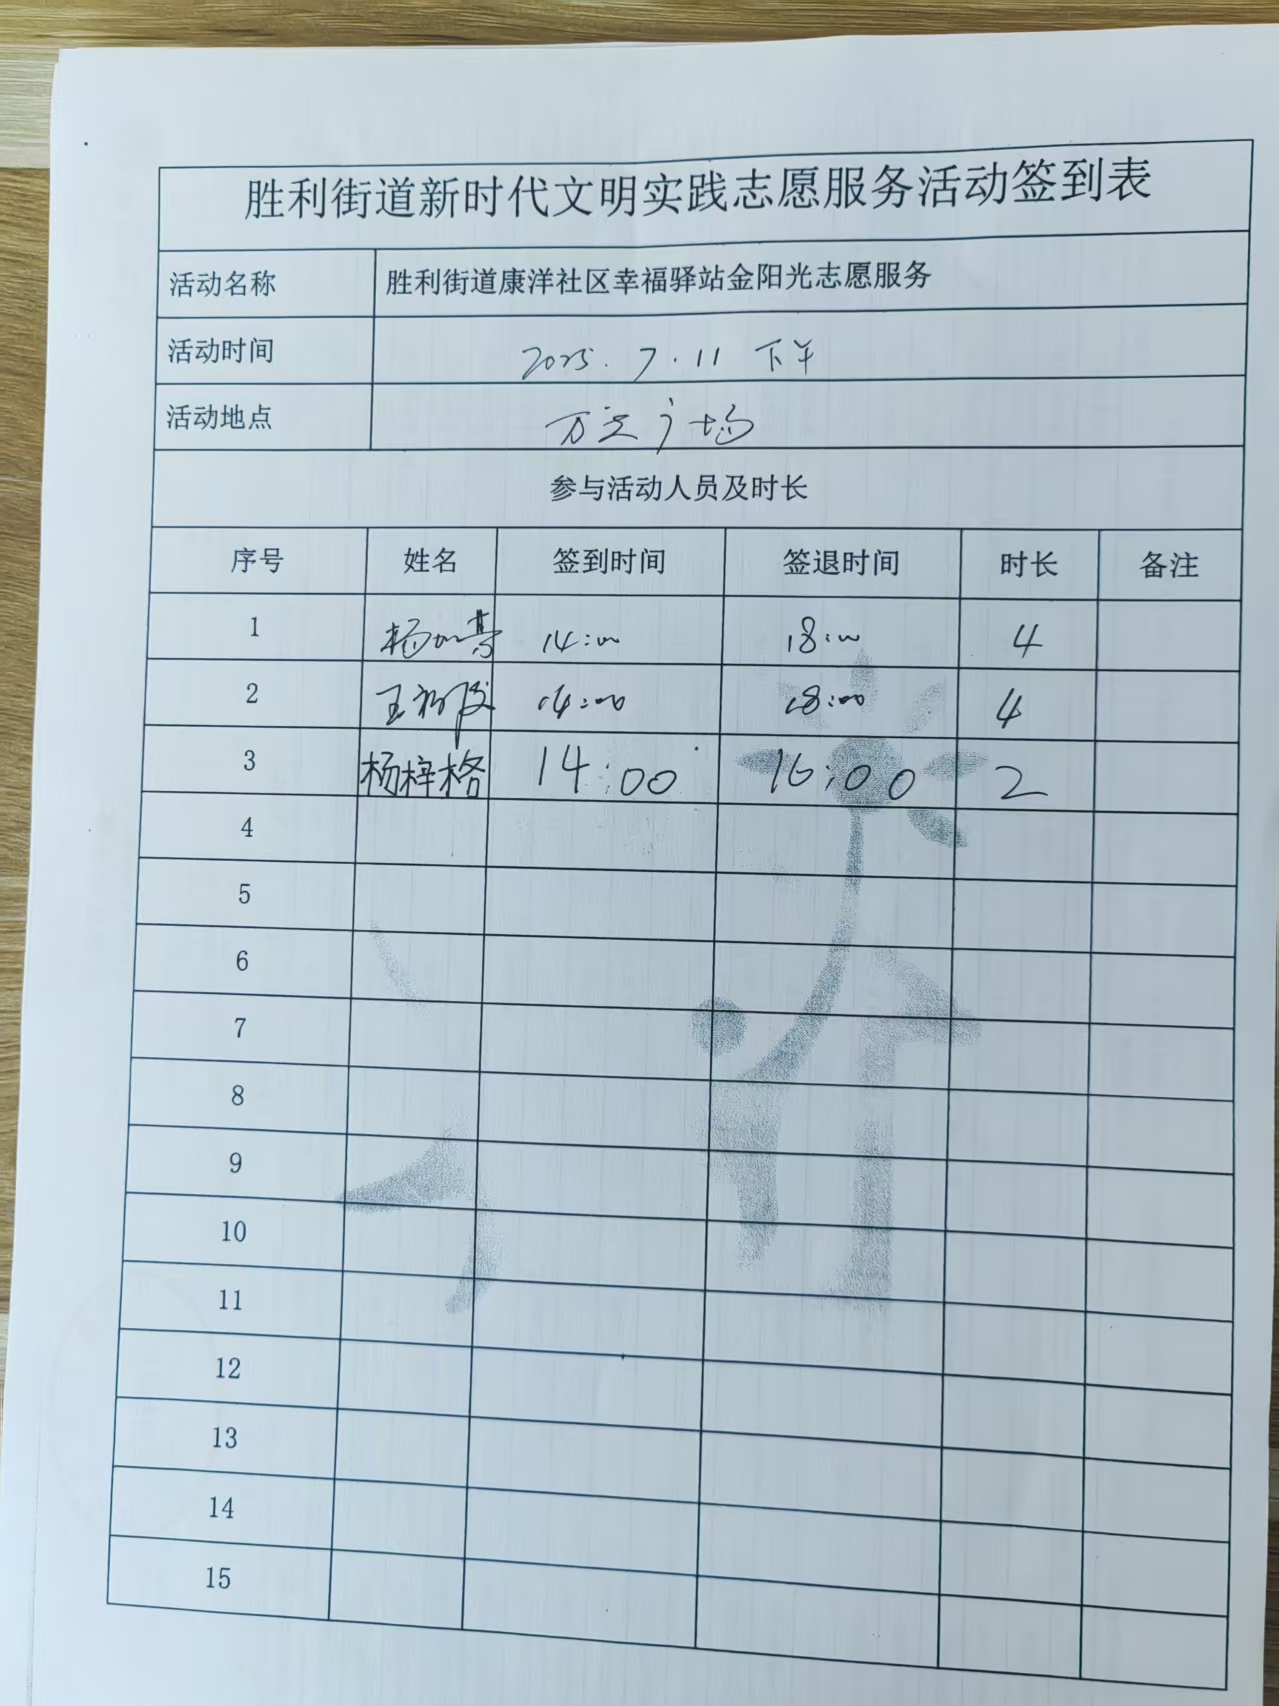 胜利街道新时代文明实践志愿服务活动签到表
活动名称 胜利街道康洋社区幸福驿站金阳光志愿服务
活动时间 2025.7.11 下午
活动地点 万达广场
参与活动人员及时长
序号 姓名 签到时间 签退时间 时长 备注
1 杨 14:00 18:00 4
2 王 14:00 18:00 4
3 杨梓格 14:00 16:00 2
4
5
6
7
8
9
10
11
12
13
14
15